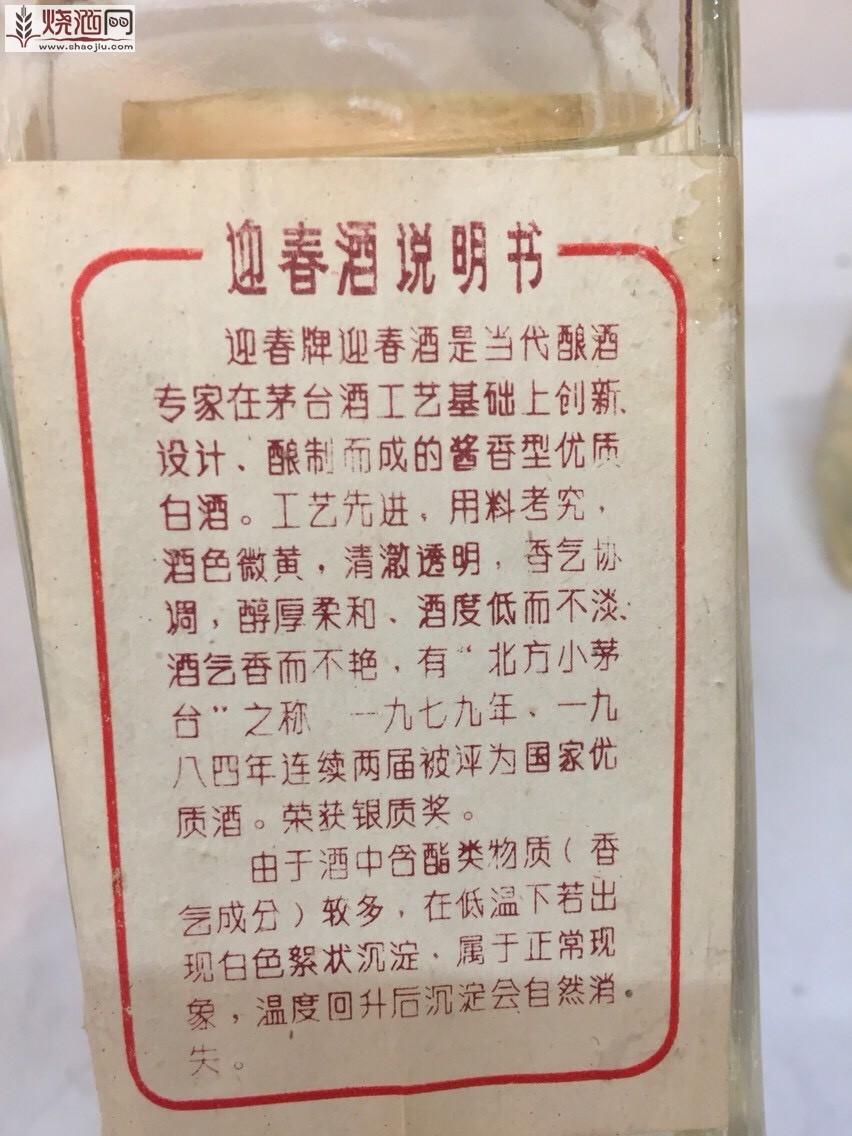 烧酒网
www.shaojiu.com
迎春酒说明书
迎春牌迎春酒是当代酿酒
专家在茅台酒工艺基础上创新、
设计、酿制而成的酱香型优质
白酒。工艺先进，用料考究，
酒色微黄，清澈透明，香气协
调，醇厚柔和、酒度低而不淡、
酒气香而不艳，有“北方小茅
台”之称 一九七九年、一九
八四年连续两届被评为国家优
质酒。荣获银质奖。
由于酒中含酯类物质（香
气成分）较多，在低温下若出
现白色絮状沉淀、属于正常现
象，温度回升后沉淀会自然消
失。